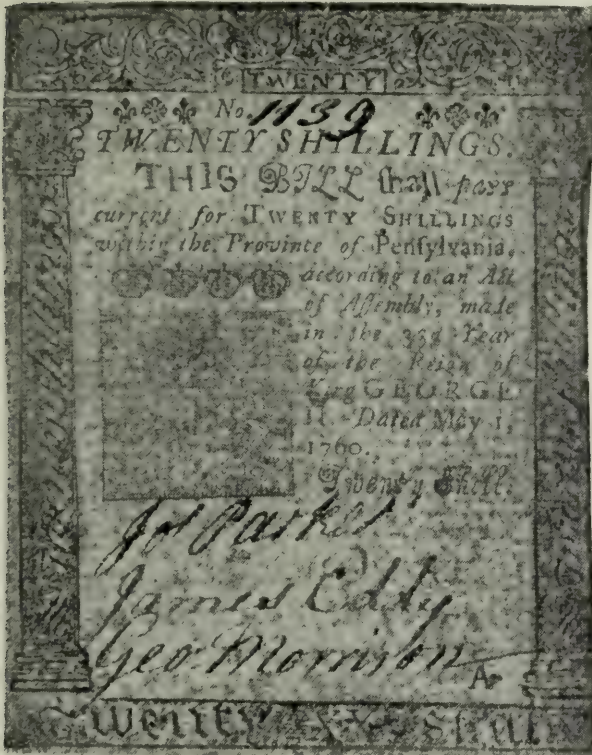 TWENTY
No. 1139
TWENTY SHILLINGS.
THIS BILL shall pass
current for TWENTY SHILLINGS
within the Province of Pensylvania,
according to an Act
of Assembly, made
in the 33d Year
of the Reign of
King GEORGE
II. Dated May 1,
1760.
Twenty Shill.
Jos Parker
James Eddy
Geo: Morrison
A